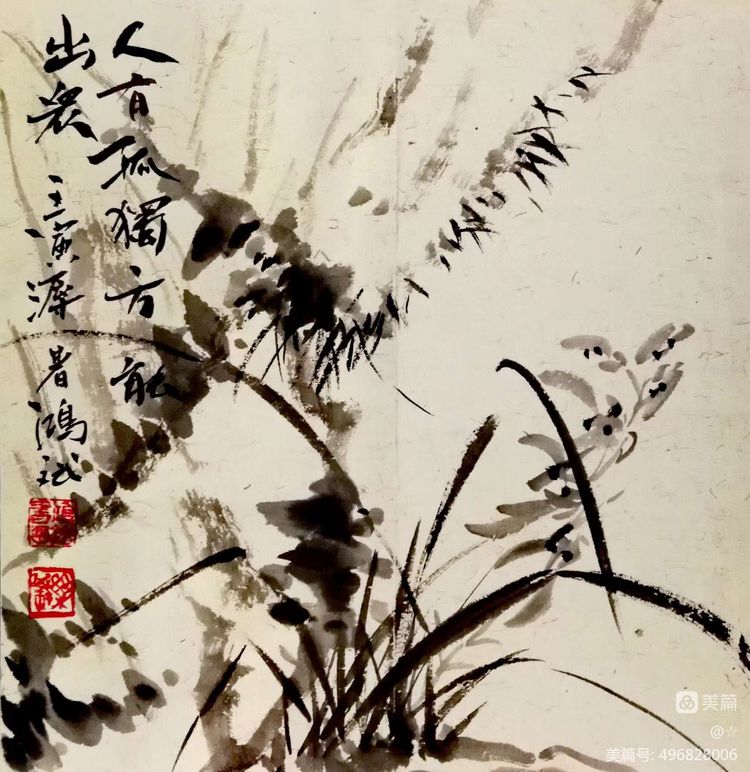 人有孤獨方能
出衆 壬寅溽暑鴻斌
美篇
@☆
美篇号: 496828006